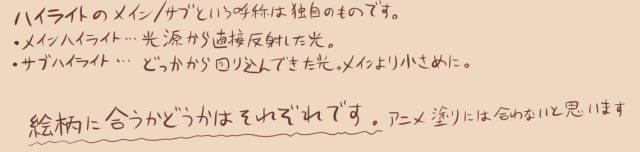 ハイライトのメイン/サブという呼称は独自のものです。
・メインハイライト…光源から直接反射した光。
・サブハイライト… どっかから回り込んできた光。メインより小さめに。
絵柄に合うかどうかはそれぞれです。アニメ塗りには合わないと思います